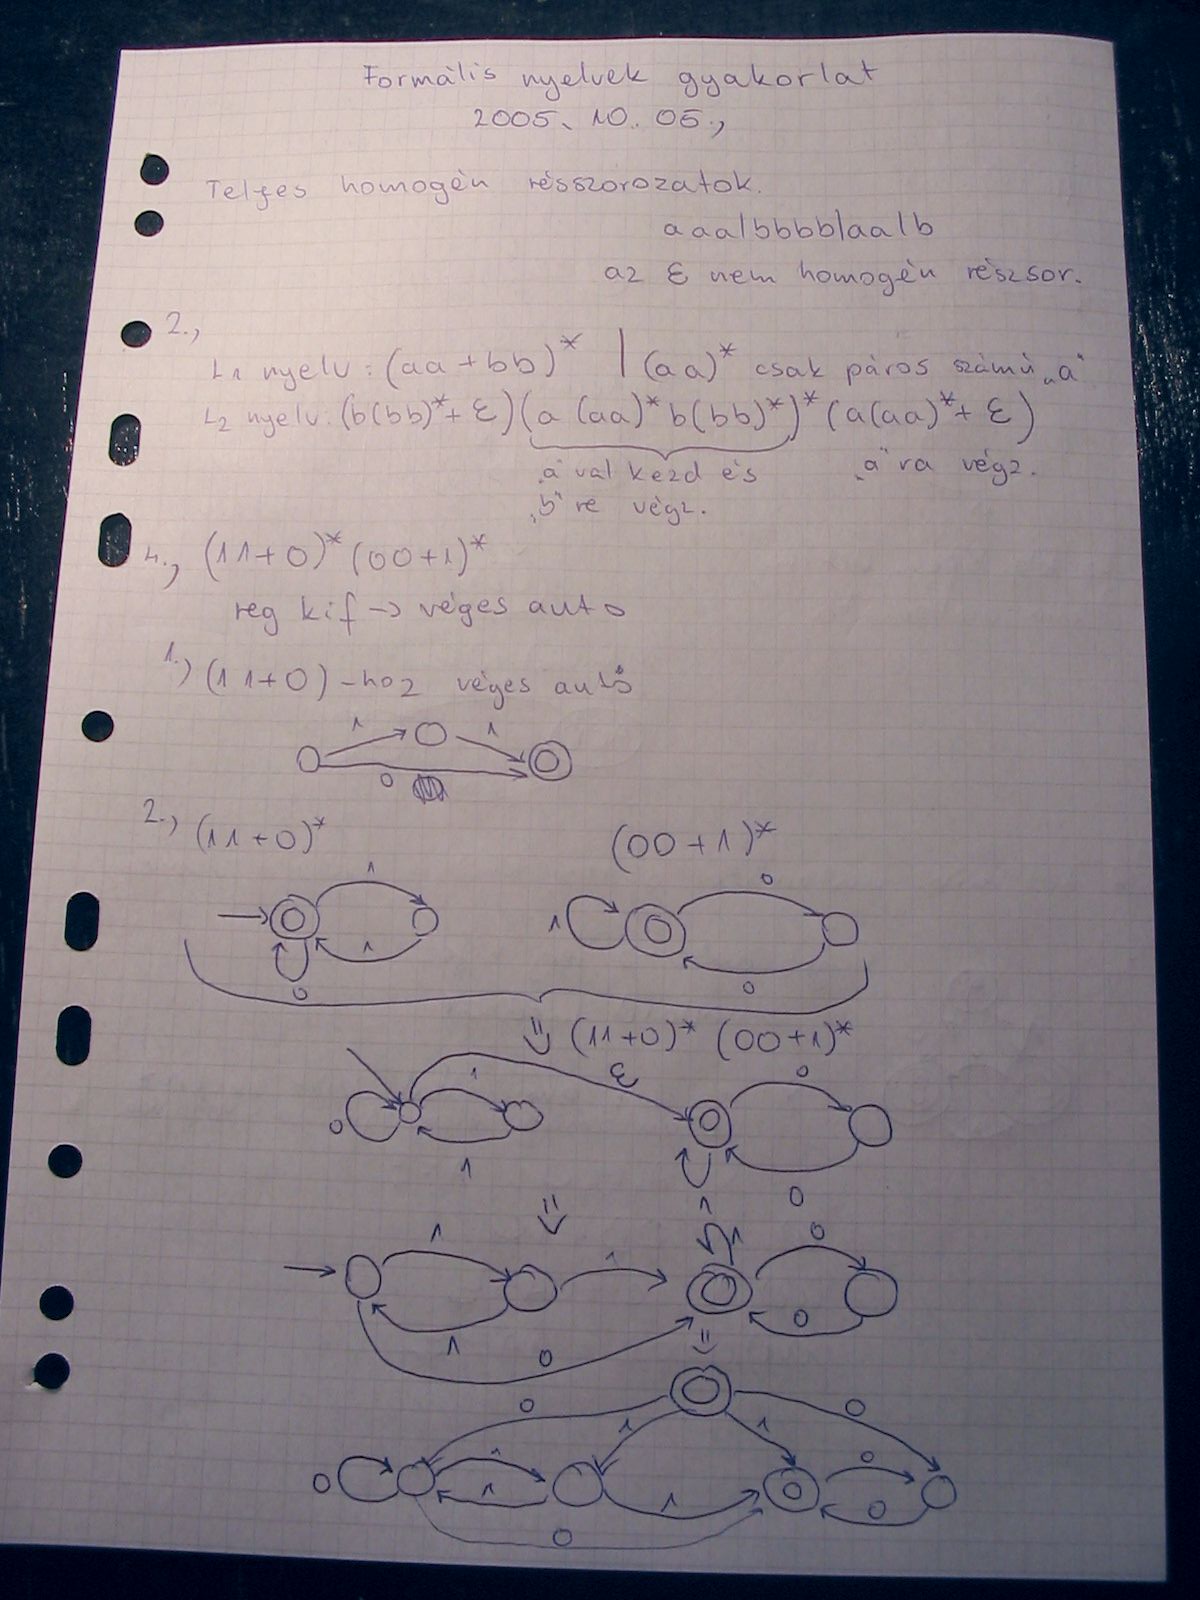 Formális nyelvek gyakorlat
2005. 10. 05.,
Teljes homogén részsorozatok.
aaa|bbbb|aa|b
az ε nem homogén részsor.
2.,
L1 nyelv: (aa+bb)* | (aa)* csak páros számú „a"
L2 nyelv: (b(bb)*+ε)(a(aa)*b(bb)*)*(a(aa)*+ε)
„a"val kezd és „a"ra végz.
„b"re végz.
4., (11+0)*(00+1)*
reg kif → véges auto
1.) (11+0)-hoz véges autó
1 1
0
2., (11+0)* (00+1)*
1 0
1
1
0 0
⇓ (11+0)* (00+1)*
0
1 ε
0
1
0
1
⇓
1 1 1 0
1 0
0
⇓
0 1 1 0
0 1 1 1 0 0
0